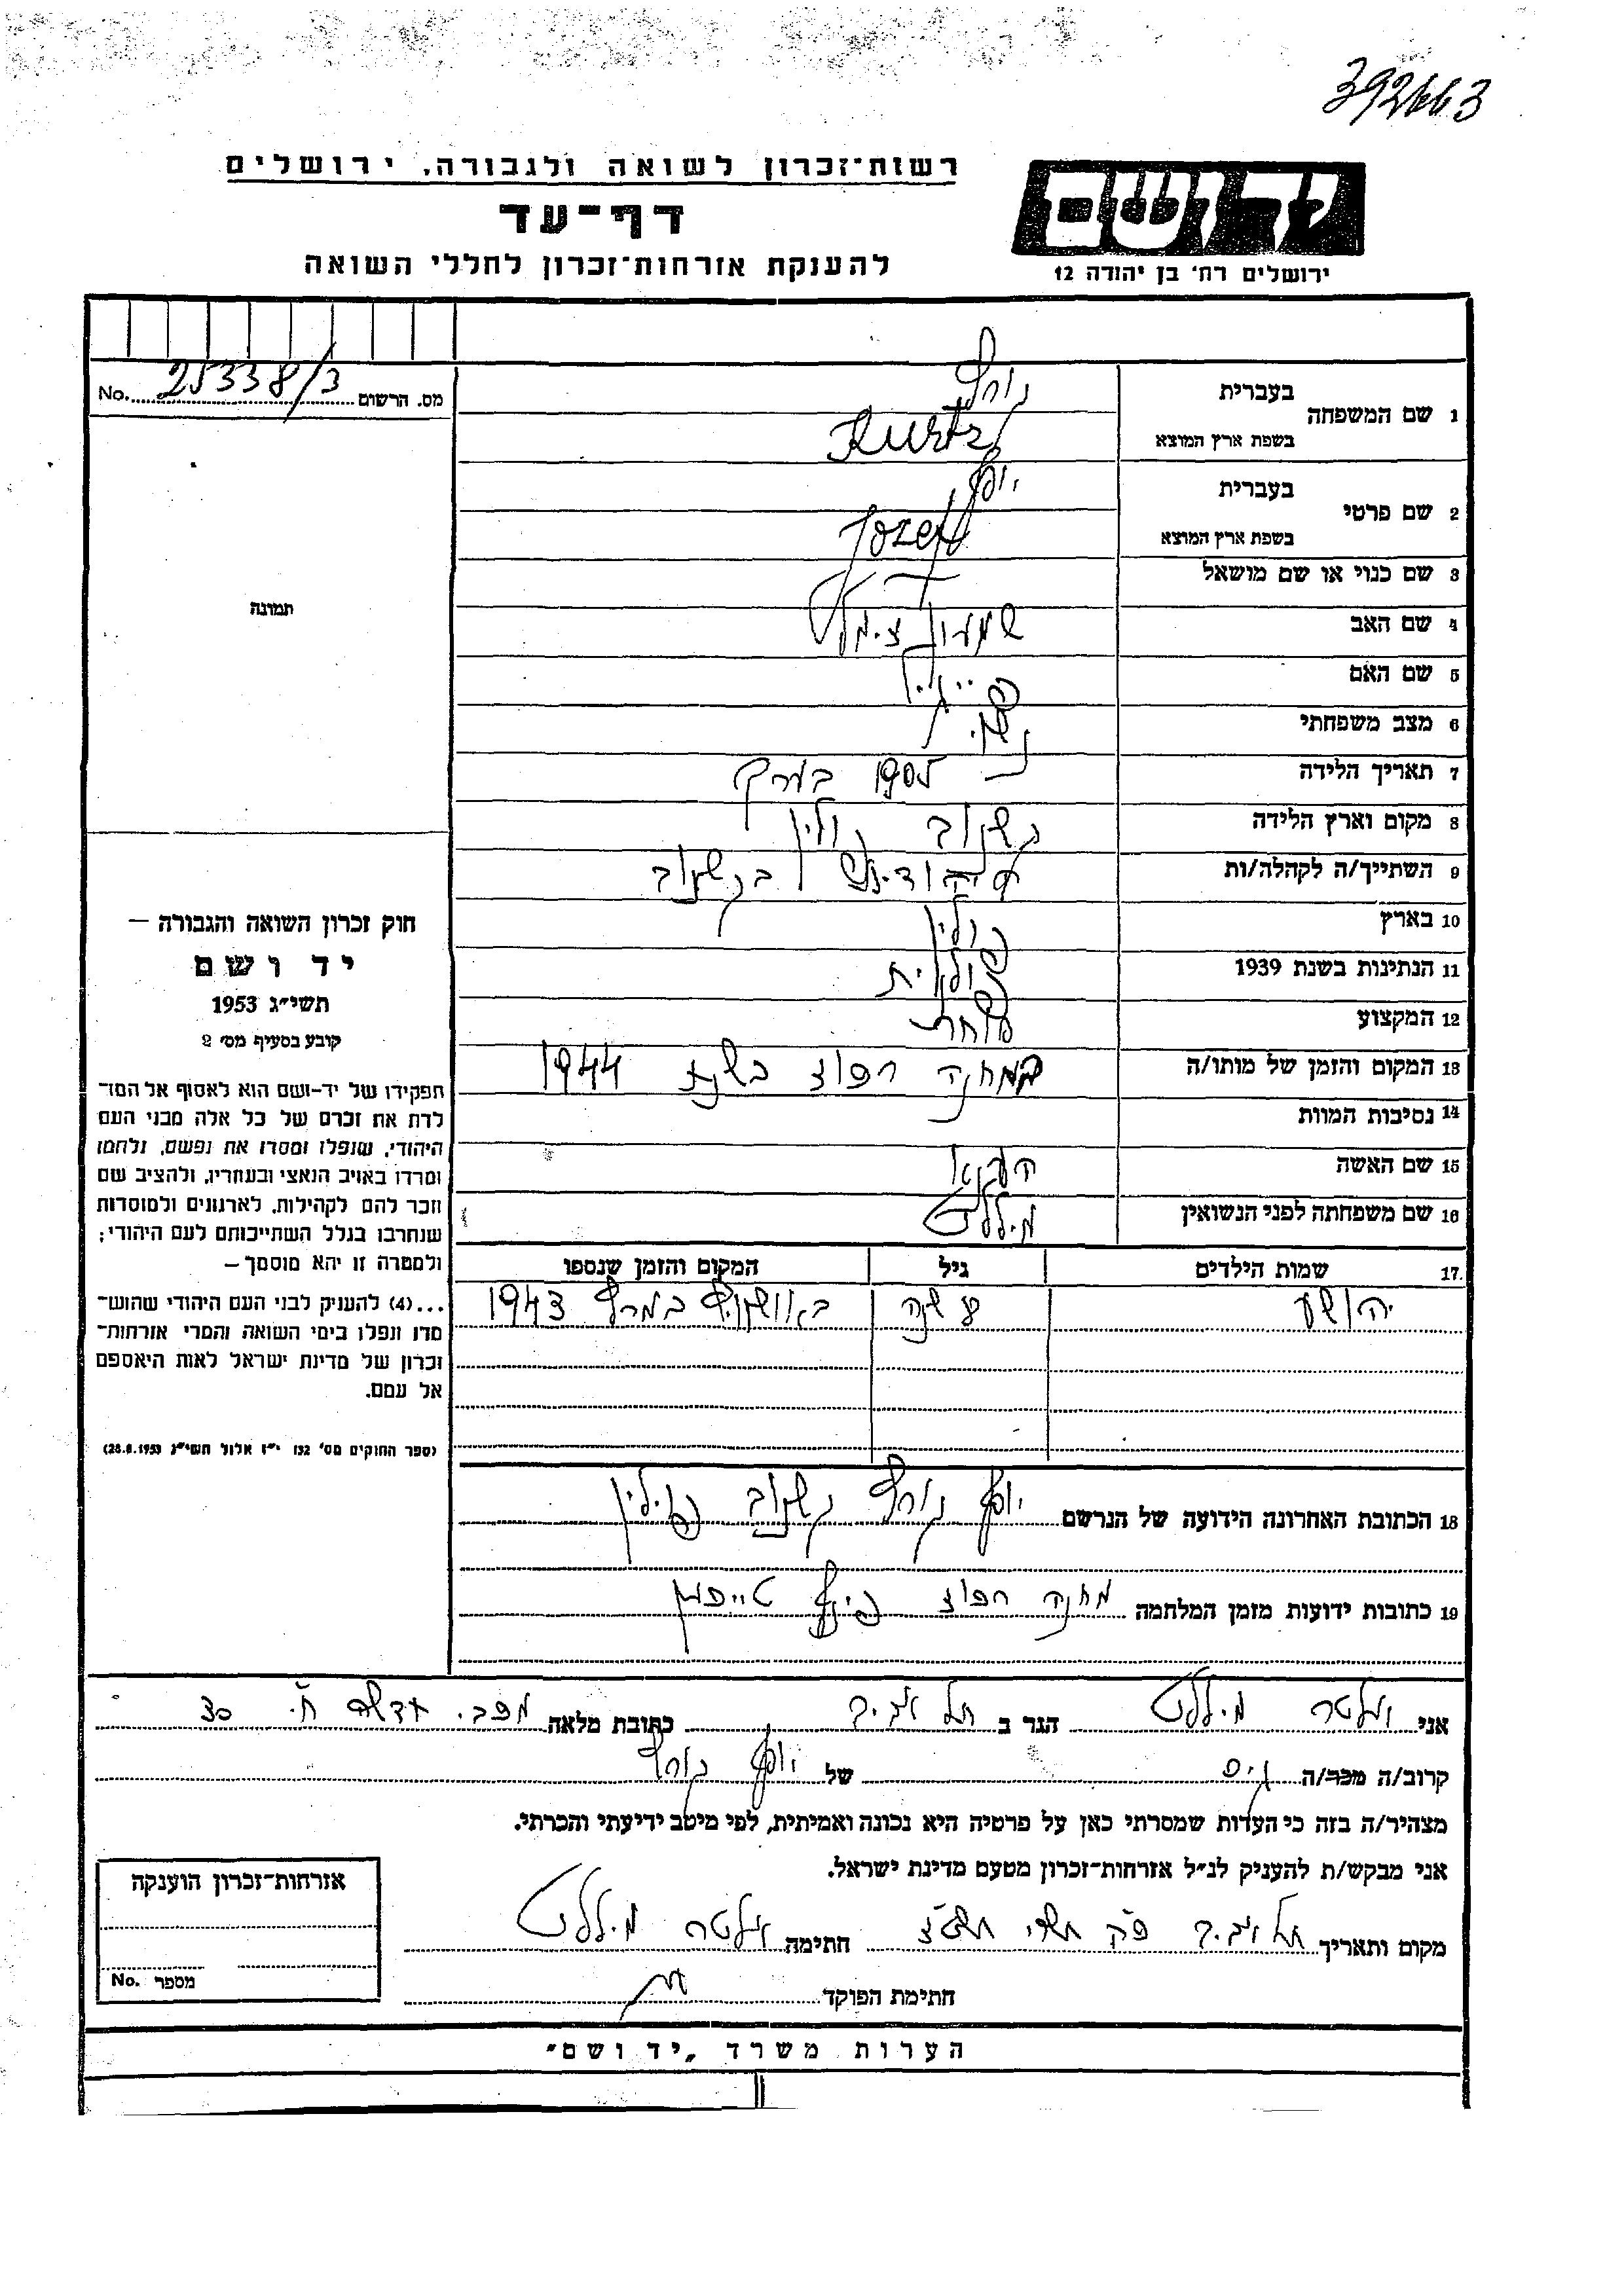 392663
רשות־זכרון לשואה ולגבורה, ירושלים
דף־עד
להענקת אזרחות־זכרון לחללי השואה
יד ושם
ירושלים רח' בן יהודה 12
מס. הרשום 25338/3 No.
תמונה
1 שם המשפחה בעברית קורץ
בשפת ארץ המוצא Kurtz
2 שם פרטי בעברית יוסף
בשפת ארץ המוצא Jozef
3 שם כנוי או שם מושאל
4 שם האב שמעון
5 שם האם
6 מצב משפחתי נשוי
7 תאריך הלידה 1905 בערך
8 מקום וארץ הלידה קשנוב פולין
9 השתייך/ה לקהלה/ות היהודית בקשנוב
10 בארץ פולין
11 הנתינות בשנת 1939 פולנית
12 המקצוע סוחר
13 המקום והזמן של מותו/ה במחנה רפוצ בשנת 1944
14 נסיבות המוות
15 שם האשה
16 שם משפחתה לפני הנשואין מיללט
17. שמות הילדים גיל המקום והזמן שנספו
יהושע שנה באושויץ במרץ 1943
18 הכתובת האחרונה הידועה של הנרשם יוסף קורץ קשנוב פולין
19 כתובות ידועות מזמן המלחמה מחנה רפוצ
חוק זכרון השואה והגבורה —
יד ושם
תשי״ג 1953
קובע בסעיף מס׳ 2
תפקידו של יד-ושם הוא לאסוף אל המו־
לדת את זכרם של כל אלה מבני העם
היהודי, שנפלו ומסרו את נפשם, נלחמו
ומרדו באויב הנאצי ובעוזריו, ולהציב שם
וזכר להם לקהילות, לארגונים ולמוסדות
שנחרבו בגלל השתייכותם לעם היהודי;
ולמטרה זו יהא מוסמך —
...(4) להעניק לבני העם היהודי שהוש־
מדו ונפלו בימי השואה והמרי אזרחות־
זכרון של מדינת ישראל לאות היאספם
אל עמם.
(ספר החוקים מס' 132 י״ז אלול תשי״ג 28.8.1953)
אני ואלטר מיללט הגר ב תל אביב כתובת מלאה
קרוב/ה מכר/ה גיס של יוסף קורץ
מצהיר/ה בזה כי העדות שמסרתי כאן על פרטיה היא נכונה ואמיתית, לפי מיטב ידיעתי והכרתי.
אני מבקש/ת להעניק לנ״ל אזרחות־זכרון מטעם מדינת ישראל.
מקום ותאריך תל אביב חתימה ואלטר מיללט
חתימת הפוקד
אזרחות־זכרון הוענקה
מספר No.
הערות משרד „יד ושם״